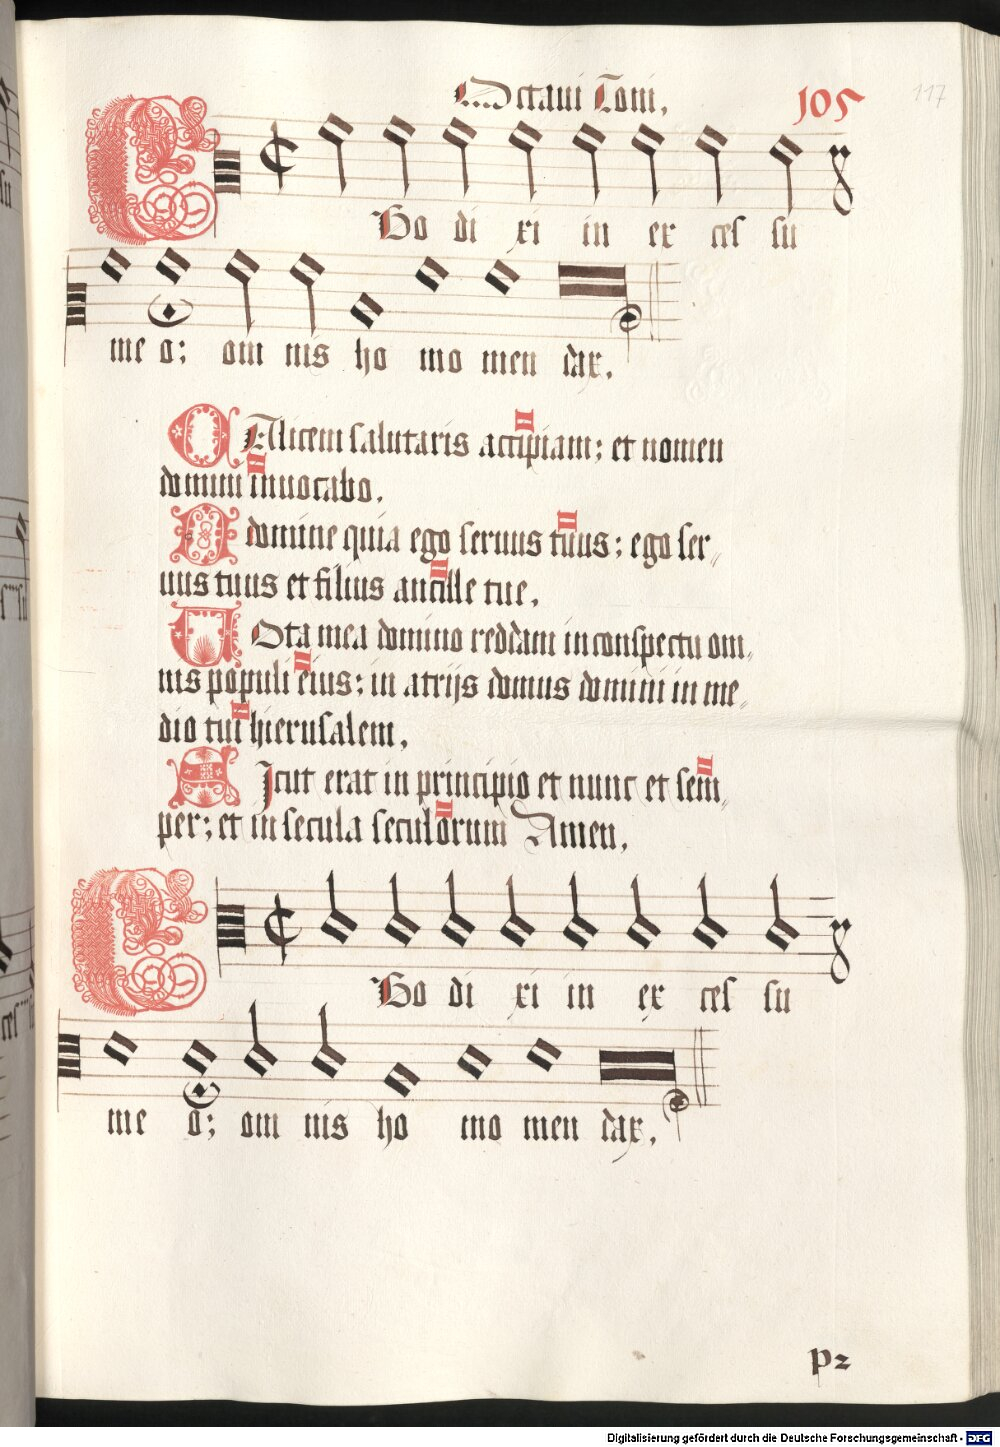 Octaui Toni.
105
117
Ego di xi in ex ces su
me o; om nis ho mo men dax.
CAlicem salutaris accipiam; et nomen
domini inuocabo.
O domine quia ego seruus tuus; ego ser„
uus tuus et filius ancille tue.
VOta mea domino reddam in conspectu om„
nis populi eius; in atrijs domus domini in me„
dio tui hierusalem.
SIcut erat in principio et nunc et sem„
per; et in secula seculorum Amen.
Ego di xi in ex ces su
me o; om nis ho mo men dax.
p2
Digitalisierung gefördert durch die Deutsche Forschungsgemeinschaft - DFG